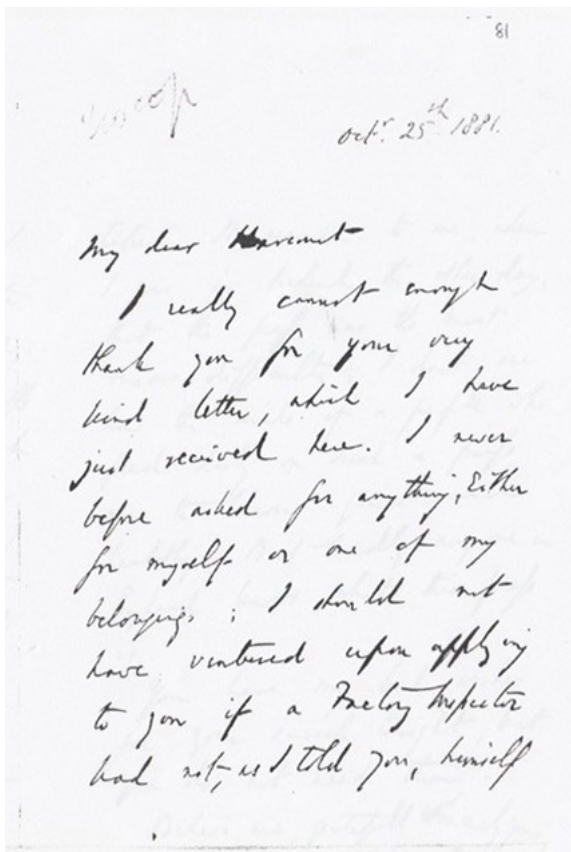 81
Octr. 25th 1881.
My dear Harcourt
I really cannot enough
thank you for your very
kind letter, which I have
just received here. I never
before asked for anything, either
for myself or one of my
belongings; I should not
have ventured upon applying
to you if a Factory Inspector
had not, as I told you, himself